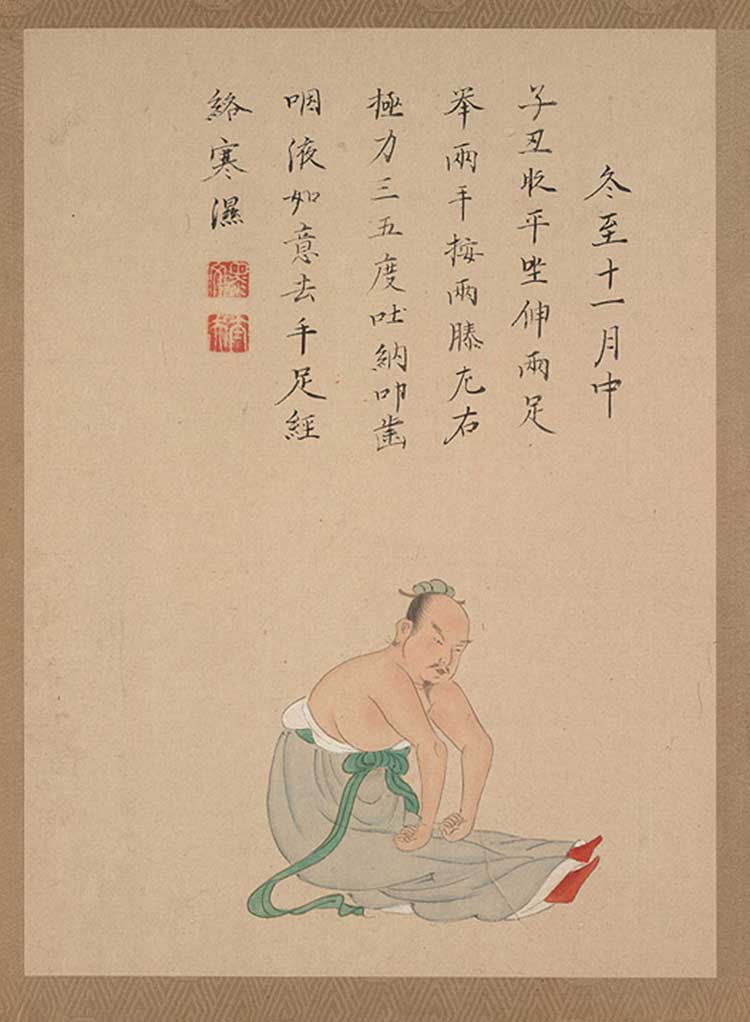 冬至十一月中
子丑时平坐伸兩足
举兩手按兩膝左右
極力三五度吐納叩齒
咽液如意去手足經
絡寒濕